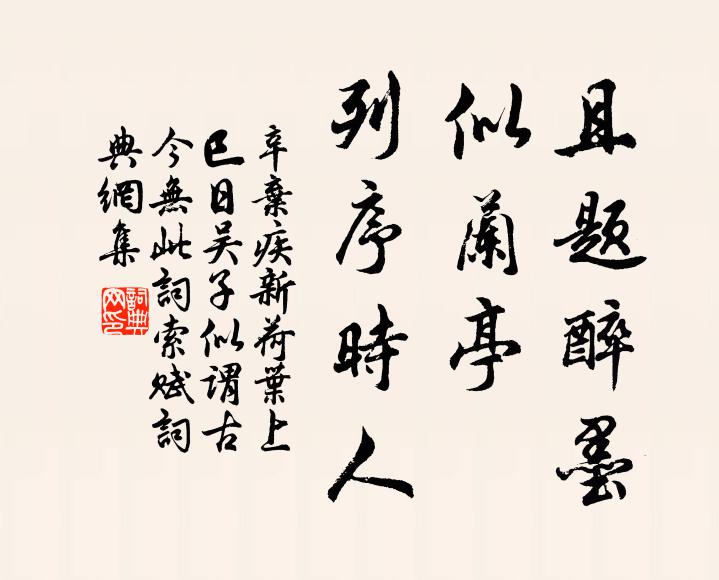 且題醉墨
似蘭亭
列序時人
辛棄疾新荷葉上
巳日吳子似謂古
今無此詞索賦詞
典網集
詞典
网印